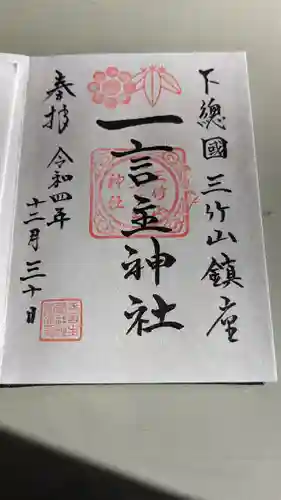 下總國三竹山鎮座
一言主神社
奉拝
令和四年
十二月三十日